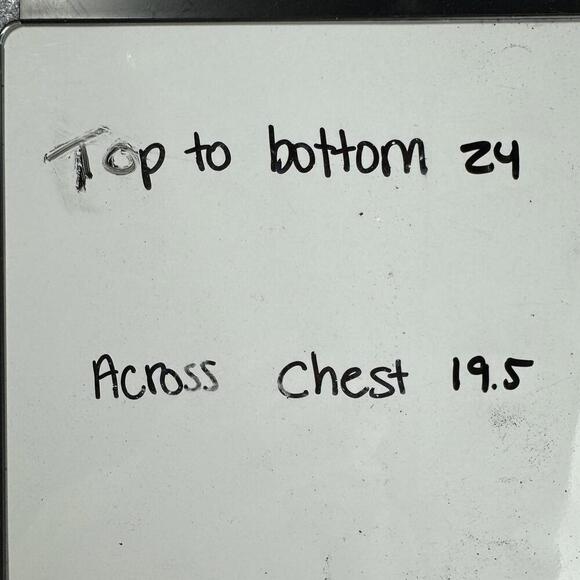 Top to bottom 24
Across Chest 19.5